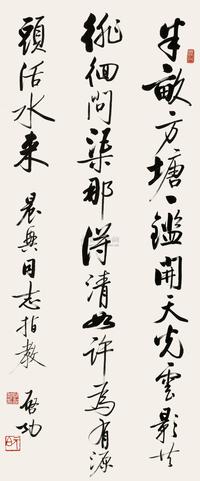 半畝方塘一鑑開天光雲影共
徘徊問渠那得清如許為有源
頭活水来 晨興同志指教 啟功